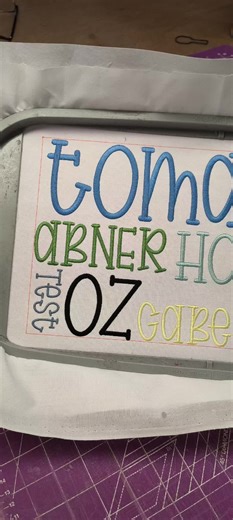 toma
ABNER HO
Test
OZ GABE